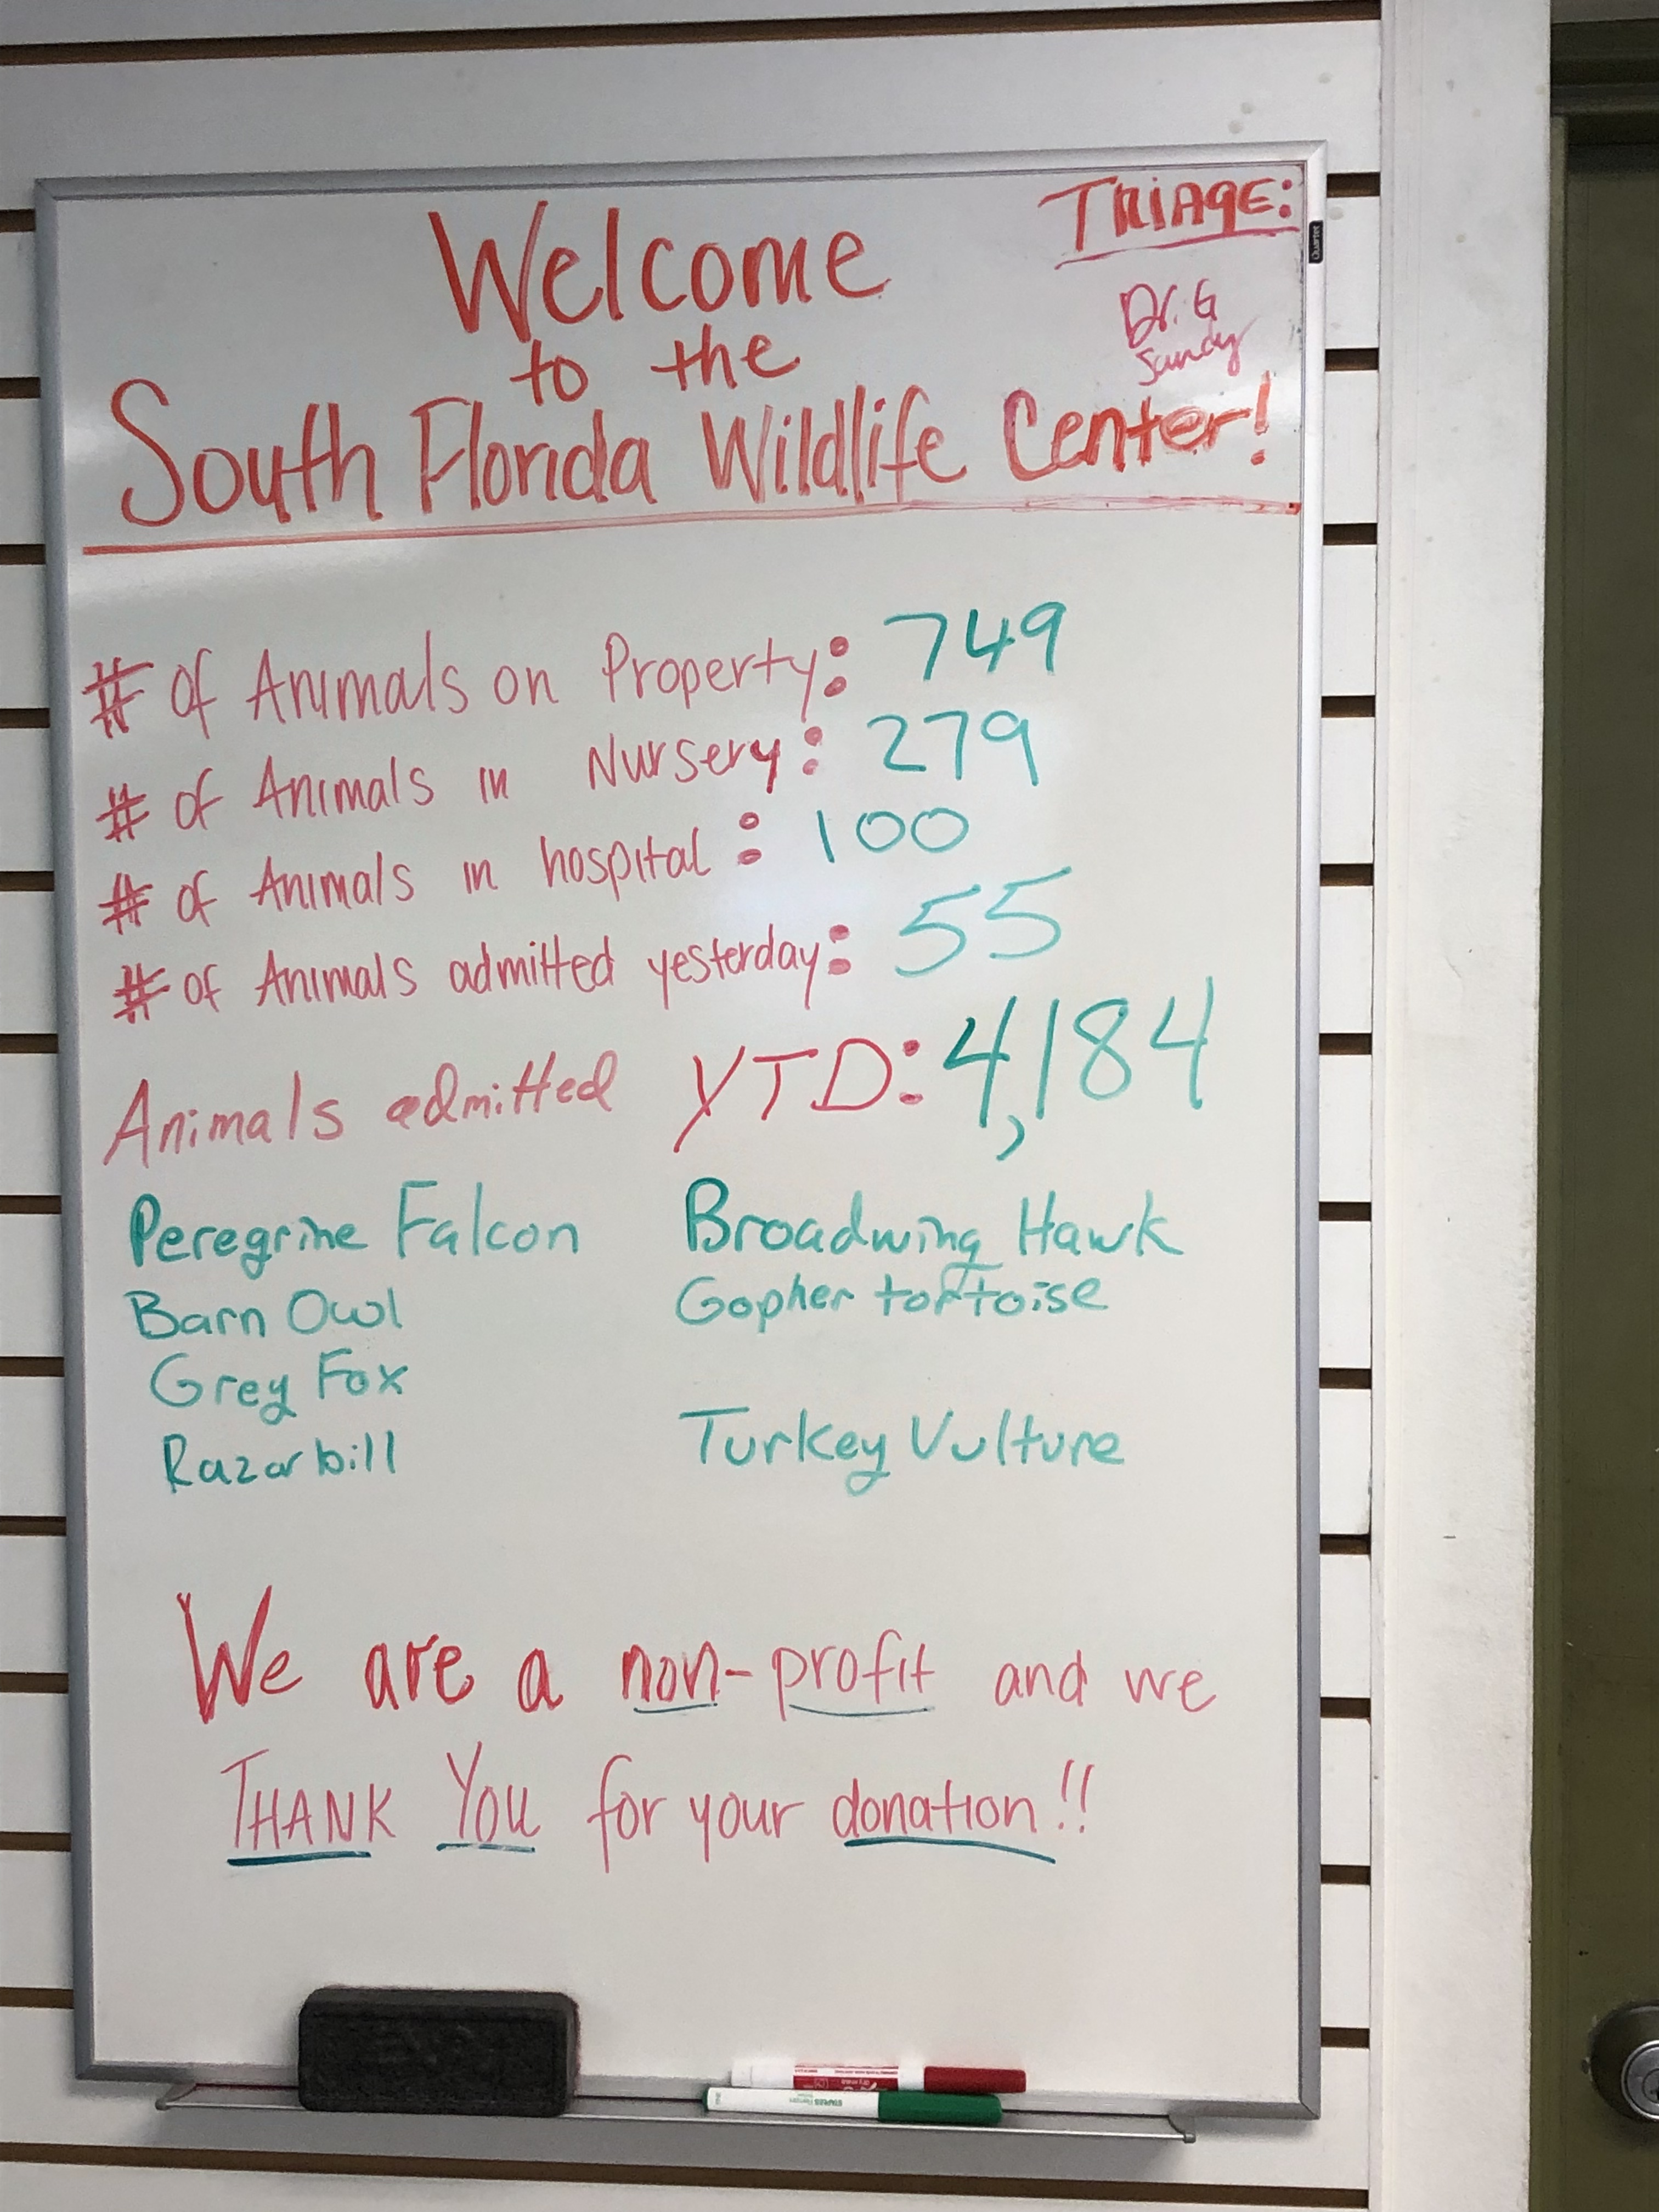 TRIAGE:
Dr. G
Sandy
Welcome
to the
South Florida Wildlife Center!
# of Animals on Property: 749
# of Animals in Nursery: 279
# of Animals in hospital: 100
# of Animals admitted yesterday: 55
Animals admitted YTD: 4,184
Peregrine Falcon
Broadwing Hawk
Barn Owl
Gopher tortoise
Grey Fox
Razorbill
Turkey Vulture
We are a non-profit and we
THANK YOU for your donation!!
Quartet
STAPLES